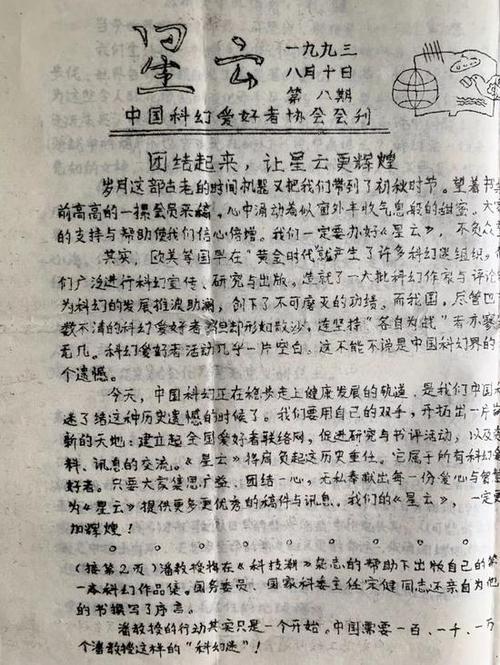 星云
一九九三
八月十日
第八期
中国科幻爱好者协会会刊
团结起来，让星云更辉煌
岁月这部古老的时间机器又把我们带到了初秋时节。望着书桌
前高高的一摞会员来稿，心中涌动着似窗外丰收气息般的甜蜜。大家
的支持与帮助使我们信心倍增。我们一定要办好《星云》，不负众望
其实，欧美等国早在“黄金时代”就产生了许多科幻迷组织，他
们广泛进行科幻宣传、研究与出版。造就了一大批科幻作家与评论
为科幻的发展推波助澜，创下了不可磨灭的功绩。而我国，尽管已
数不清的科幻爱好者，但却形如散沙，连坚持“各自为战”者亦寥寥
无几。科幻爱好者活动几乎一片空白。这不能不说是中国科幻界的
个遗憾。
今天，中国科幻正在稳步走上健康发展的轨道，是我们中国科
迷了结这种历史遗憾的时候了。我们要用自己的双手，开拓出一片
新的天地：建立起全国爱好者联络网，促进研究与书评活动，以及
料、讯息的交流。《星云》将肩负起这历史重任。它属于所有科幻
好者。只要大家集思广益、团结一心，无私奉献出每一份爱心与智
为《星云》提供更多更优秀的稿件与讯息。我们的《星云》，一定
加辉煌！
（接第2页）潘教授将在《科技潮》杂志的帮助下出版自己的第
一本科幻作品集。国务委员、国家科委主任宋健同志还亲自为他
的书撰写了序言。
潘教授的行动其实只是一个开始。中国需要一百、一千、一万
个潘教授这样的“科幻迷”！